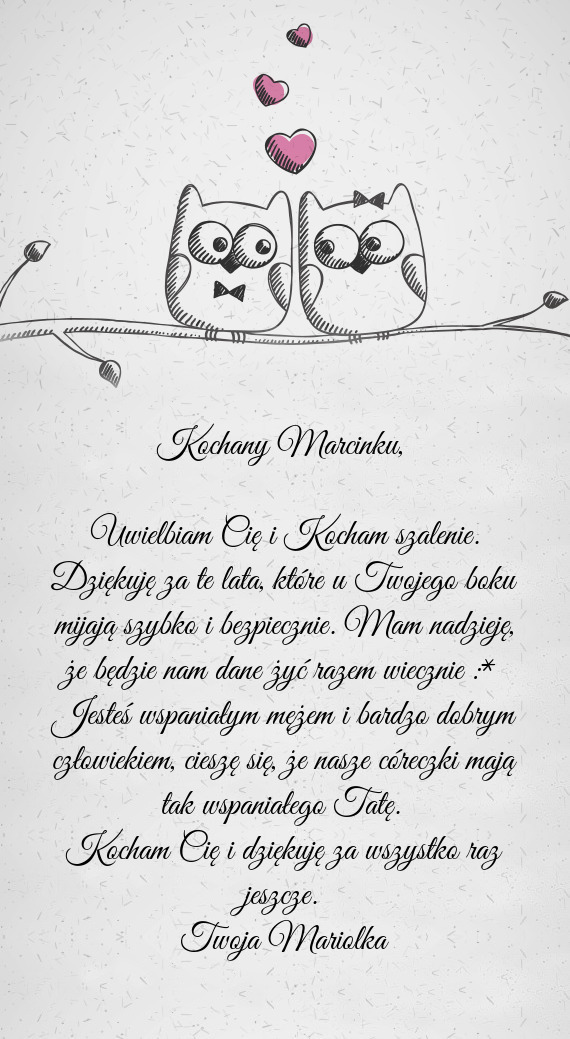 Kochany Marcinku,
Uwielbiam Cię i Kocham szalenie.
Dziękuję za te lata, które u Twojego boku
mijają szybko i bezpiecznie. Mam nadzieję,
że będzie nam dane żyć razem wiecznie :*
Jesteś wspaniałym mężem i bardzo dobrym
człowiekiem, cieszę się, że nasze córeczki mają
tak wspaniałego Tatę.
Kocham Cię i dziękuję za wszystko raz
jeszcze.
Twoja Mariolka